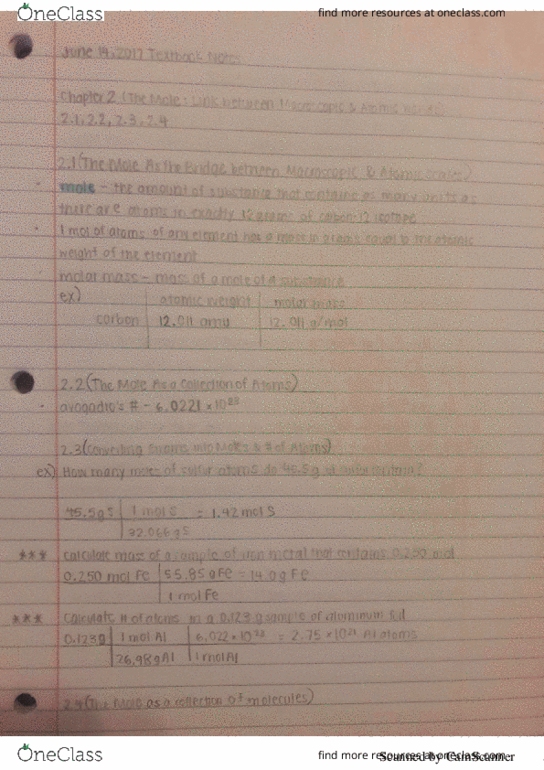 OneClass
find more resources at oneclass.com
June 14, 2017 Textbook Notes
Chapter 2 (The Mole: Link between Macroscopic & Atomic
2.1, 2.2, 2.3, 2.4
2.1 (The Mole As the Bridge between Macroscopic & Atomic Scales)
mole - the amount of substance that contains as many units as
there are atoms in exactly 12 grams of carbon-12 isotope
1 mol of atoms of any element has a mass in grams equal to the atomic
weight of the element
molar mass - mass of a mole of a substance
ex)
atomic weight molar mass
carbon 12.011 amu 12.011 g/mol
2.2 (The Mole As a Collection of Atoms)
avogadro's # - 6.0221 × 10²³
2.3 (Converting Grams into Moles & # of Atoms)
ex) How many moles of sulfur atoms do 45.5g of sulfur contain?
45.5g S 1 mol S = 1.42 mol S
32.066 g S
*** calculate mass of a sample of iron metal that contains 0.250 mol
0.250 mol Fe 55.85 g Fe = 14.0 g Fe
1 mol Fe
*** calculate # of atoms in a 0.123 g sample of aluminum foil
0.123g 1 mol Al 6.022 × 10²³ = 2.75 × 10²¹ Al atoms
26.98 g Al 1 mol Al
2.4 (The Mole as a collection of molecules)
OneClass
find more resources at oneclass.com
Scanned by CamScanner